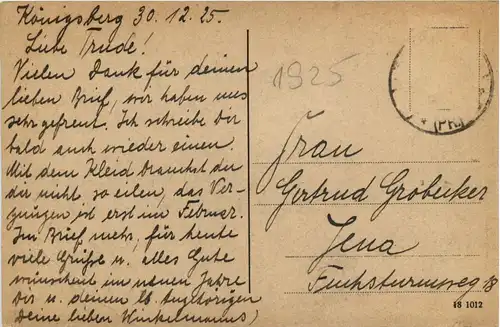 Königsberg 30.12.25.
Liebe Trude!
Vielen Dank für deinen
lieben Brief, wir haben uns
sehr gefreut. Ich schreibe dir
bald auch wieder einen.
Mit dem Kleid brauchst du
dir nicht so eilen, das Ver-
gnügen ist erst im Februar.
Im Brief mehr, für heute
viele Grüße u. alles Gute
wünschend im neuen Jahre
Dir u. deinen lb. Angehörigen
Deine lieben Winkelmanns
1925
* (PR.)
Frau
Gertrud Grobecker
Jena
Fuchsturmweg 18
18 1012